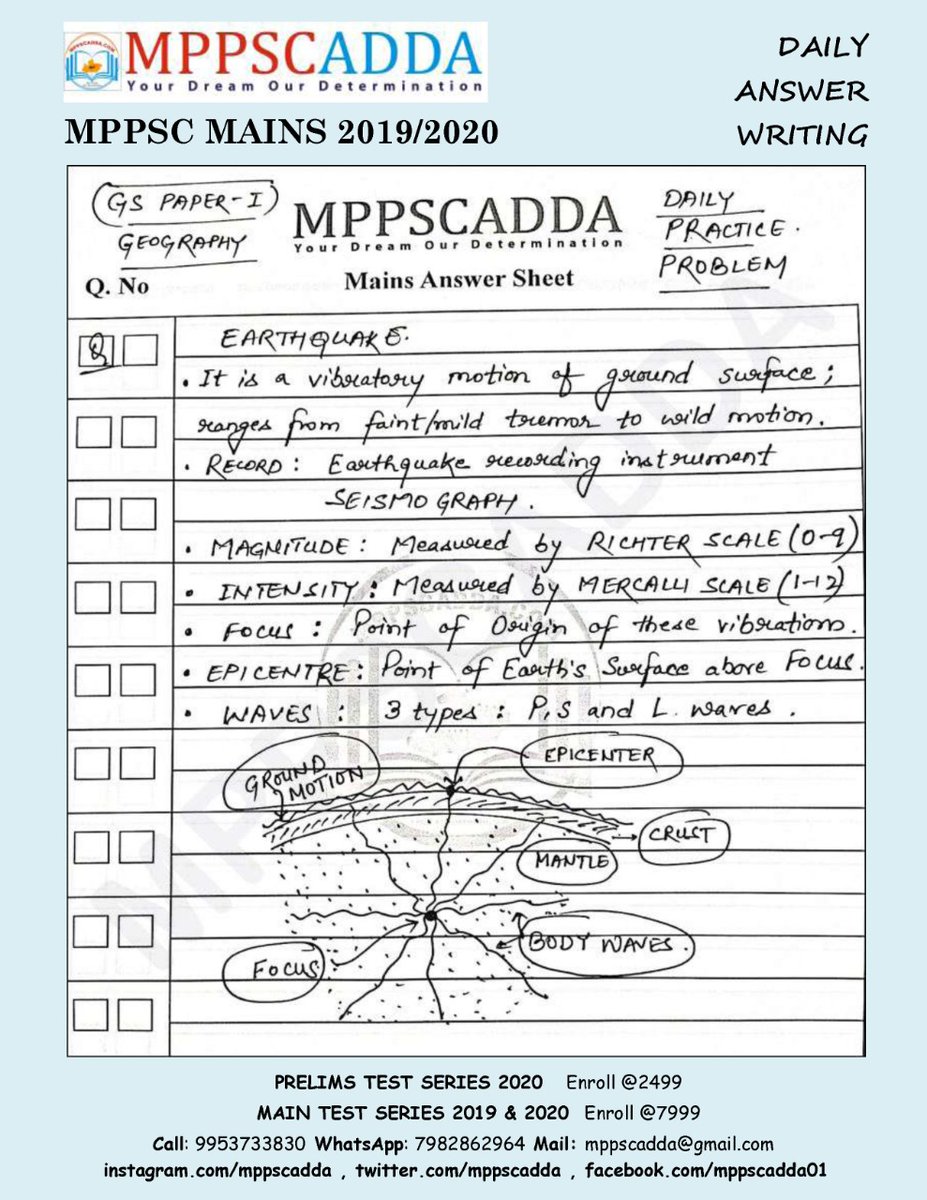 MPPSCADDA
Your Dream Our Determination
MPPSC MAINS 2019/2020
DAILY
ANSWER
WRITING
GS PAPER-I
GEOGRAPHY
MPPSCADDA
Your Dream Our Determination
DAILY
PRACTICE.
PROBLEM
Q. No
Mains Answer Sheet
Q
EARTHQUAKE.
• It is a vibratory motion of ground surface;
ranges from faint/mild tremor to wild motion.
• RECORD: Earthquake recording instrument
SEISMO GRAPH.
• MAGNITUDE: Measured by RICHTER SCALE (0-9)
• INTENSITY: Measured by MERCALLI SCALE (1-12)
• FOCUS: Point of Origin of these vibrations.
• EPICENTRE: Point of Earth's Surface above Focus.
• WAVES: 3 types: P, S and L. waves.
GROUND
MOTION
EPICENTER
CRUST
MANTLE
BODY WAVES.
FOCUS
PRELIMS TEST SERIES 2020 Enroll @2499
MAIN TEST SERIES 2019 & 2020 Enroll @7999
Call: 9953733830 WhatsApp: 7982862964 Mail: mppscadda@gmail.com
instagram.com/mppscadda , twitter.com/mppscadda , facebook.com/mppscadda01